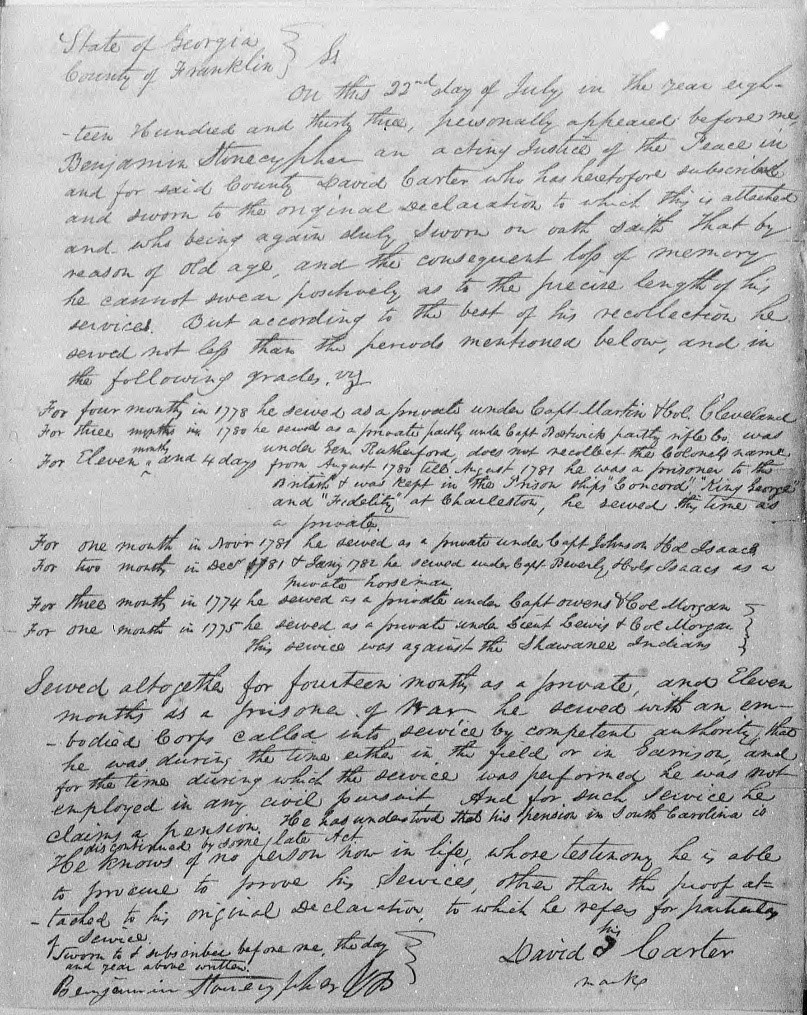 State of Georgia
County of Franklin } Ss
On this 22nd day of July, in the year eigh-
-teen Hundred and thirty three, personally appeared before me,
Benjamin Stonecypher an acting Justice of the Peace in
and for said County David Carter who has heretofore subscribed
and sworn to the original Declaration to which this is attached
and who being again duly sworn on oath saith that by
reason of old age, and the consequent loss of memory
he cannot swear positively as to the precise length of his
services. But according to the best of his recollection he
served not less than the periods mentioned below, and in
the following grades. viz
For four month in 1778 he served as a private under Capt Martin & Col. Cleveland
For three months in 1780 he served as a private partly under Capt Bostwick partly rifle Co. was
under Gen. Rutherford, does not recollect the Colonels name
For Eleven months and 4 days from August 1780 till August 1781 he was a prisoner to the
British & was kept in the Prison ships "Concord", "King George"
and "Fidelity" at Charleston, he served this time as
a private.
For one month in Novr 1781 he served as a private under Capt Johnson & Col Isaacs
For two month in Decr 1781 & Jany 1782 he served under Capt Beverly & Cols Isaacs as a
private horseman
For three month in 1774 he served as a private under Capt Owens & Col Morgan
For one month in 1775 he served as a private under Lieut Lewis & Col Morgan
This service was against the Shawanee Indians
Served altogether for fourteen month as a private, and Eleven
months as a prisoner of War he served with an em-
-bodied Corps called into service by competent authority, that
he was during the time either in the field or in Garrison, and
for the time during which the service was performed he was not
employed in any civil pursuit And for such service he
claims a pension. He has understood that his pension in South Carolina is
discontinued by some late Act
He knows of no person now in life, whose testimony he is able
to procure to prove his services, other than the proof at-
-tached to his original Declaration, to which he refers for particulars
of service.
Sworn to & subscribed before me, the day
and year above written.
Benjamin Stonecypher JP
David his Carter
mark